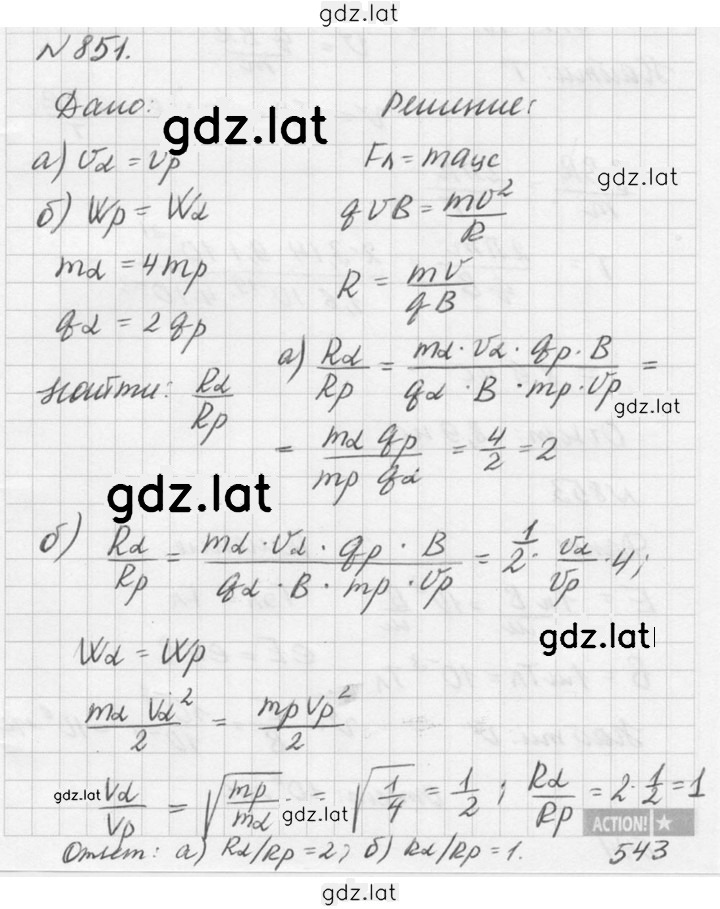 gdz.lat
N 851.
Дано:
gdz.lat
Решение:
а) Vα = Vp
Fл = maцс
gdz.lat
б) Wp = Wα
qVB = mv²/R
mα = 4mp
R = mv/qB
qα = 2qp
Найти: Rα/Rp
а) Rα/Rp = mα · Vα · qp · B / qα · B · mp · Vp =
gdz.lat
= mα qp / mp qα = 4/2 = 2
gdz.lat
б) Rα/Rp = mα · Vα · qp · B / qα · B · mp · Vp = 1/2 · Vα/Vp · 4;
gdz.lat
Wα = Wp
mα Vα²/2 = mp Vp²/2
gdz.lat
Vα/Vp = √(mp/mα) = √(1/4) = 1/2 ; Rα/Rp = 2 · 1/2 = 1
gdz.lat
ACTION!
Ответ: а) Rα/Rp = 2; б) Rα/Rp = 1.
543
gdz.lat